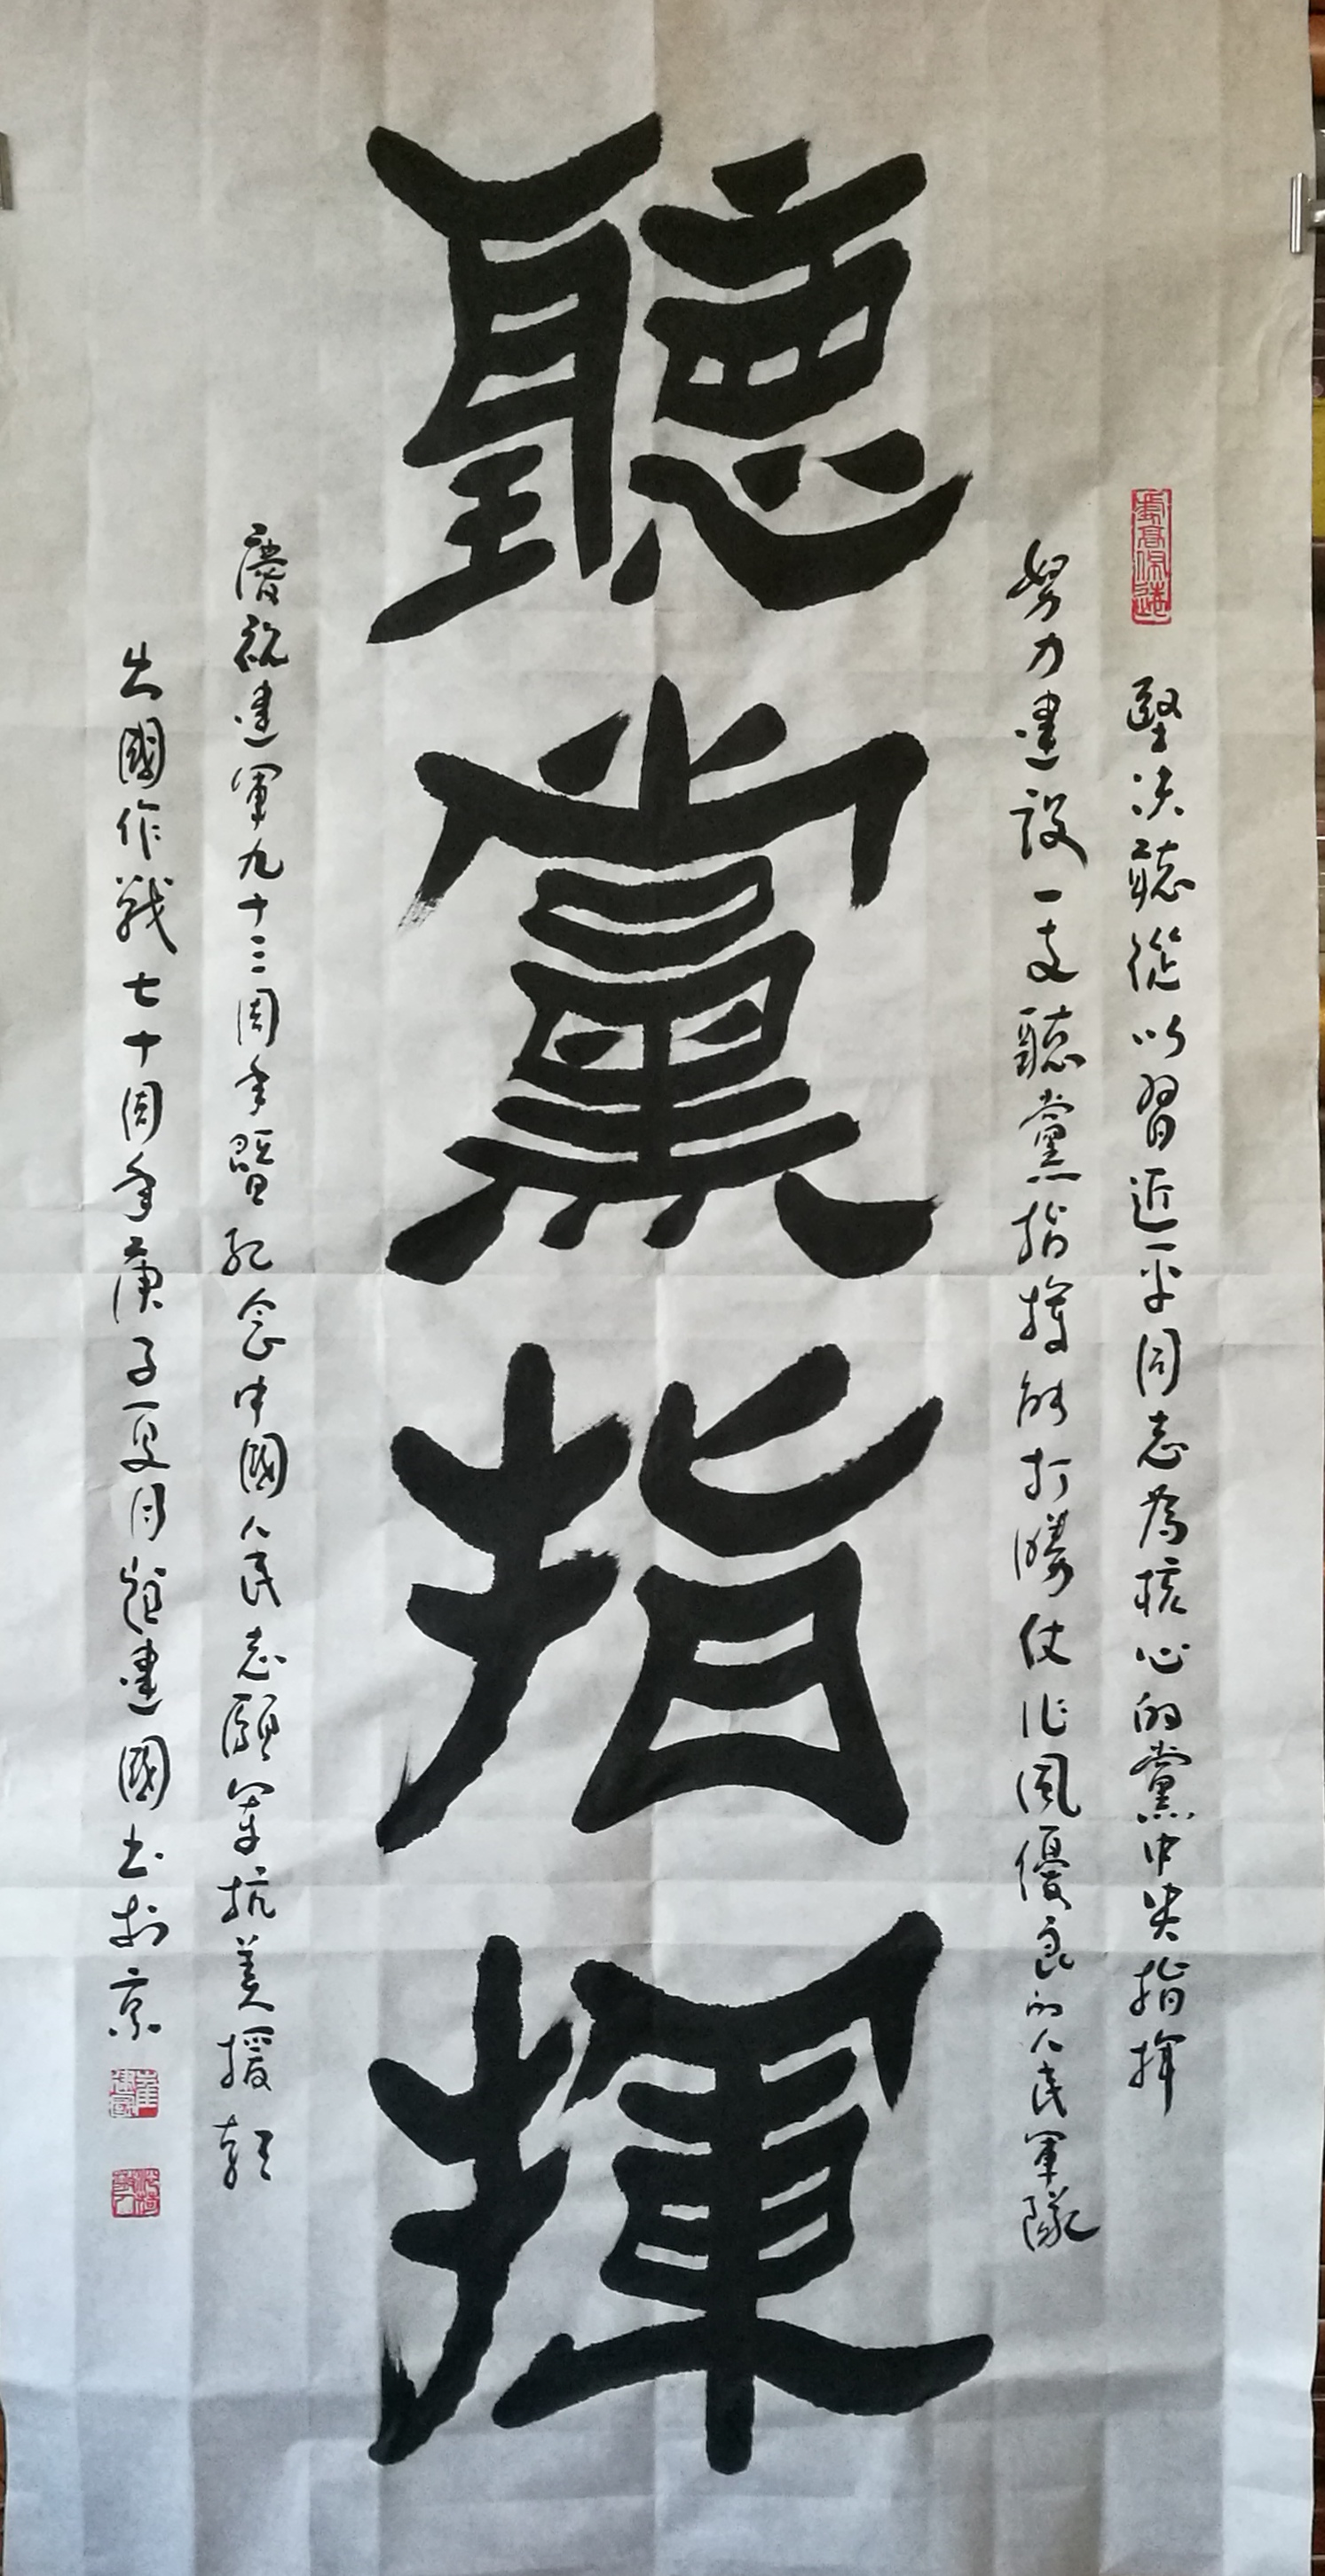 堅决聽從以習近平同志為核心的黨中央指揮
努力建設一支聽黨指揮能打勝仗作風優良的人民軍隊
聽黨指揮
慶祝建軍九十三周年暨紀念中國人民志願軍抗美援朝
出國作戰七十周年庚子夏月崔建國书於京
崔建國